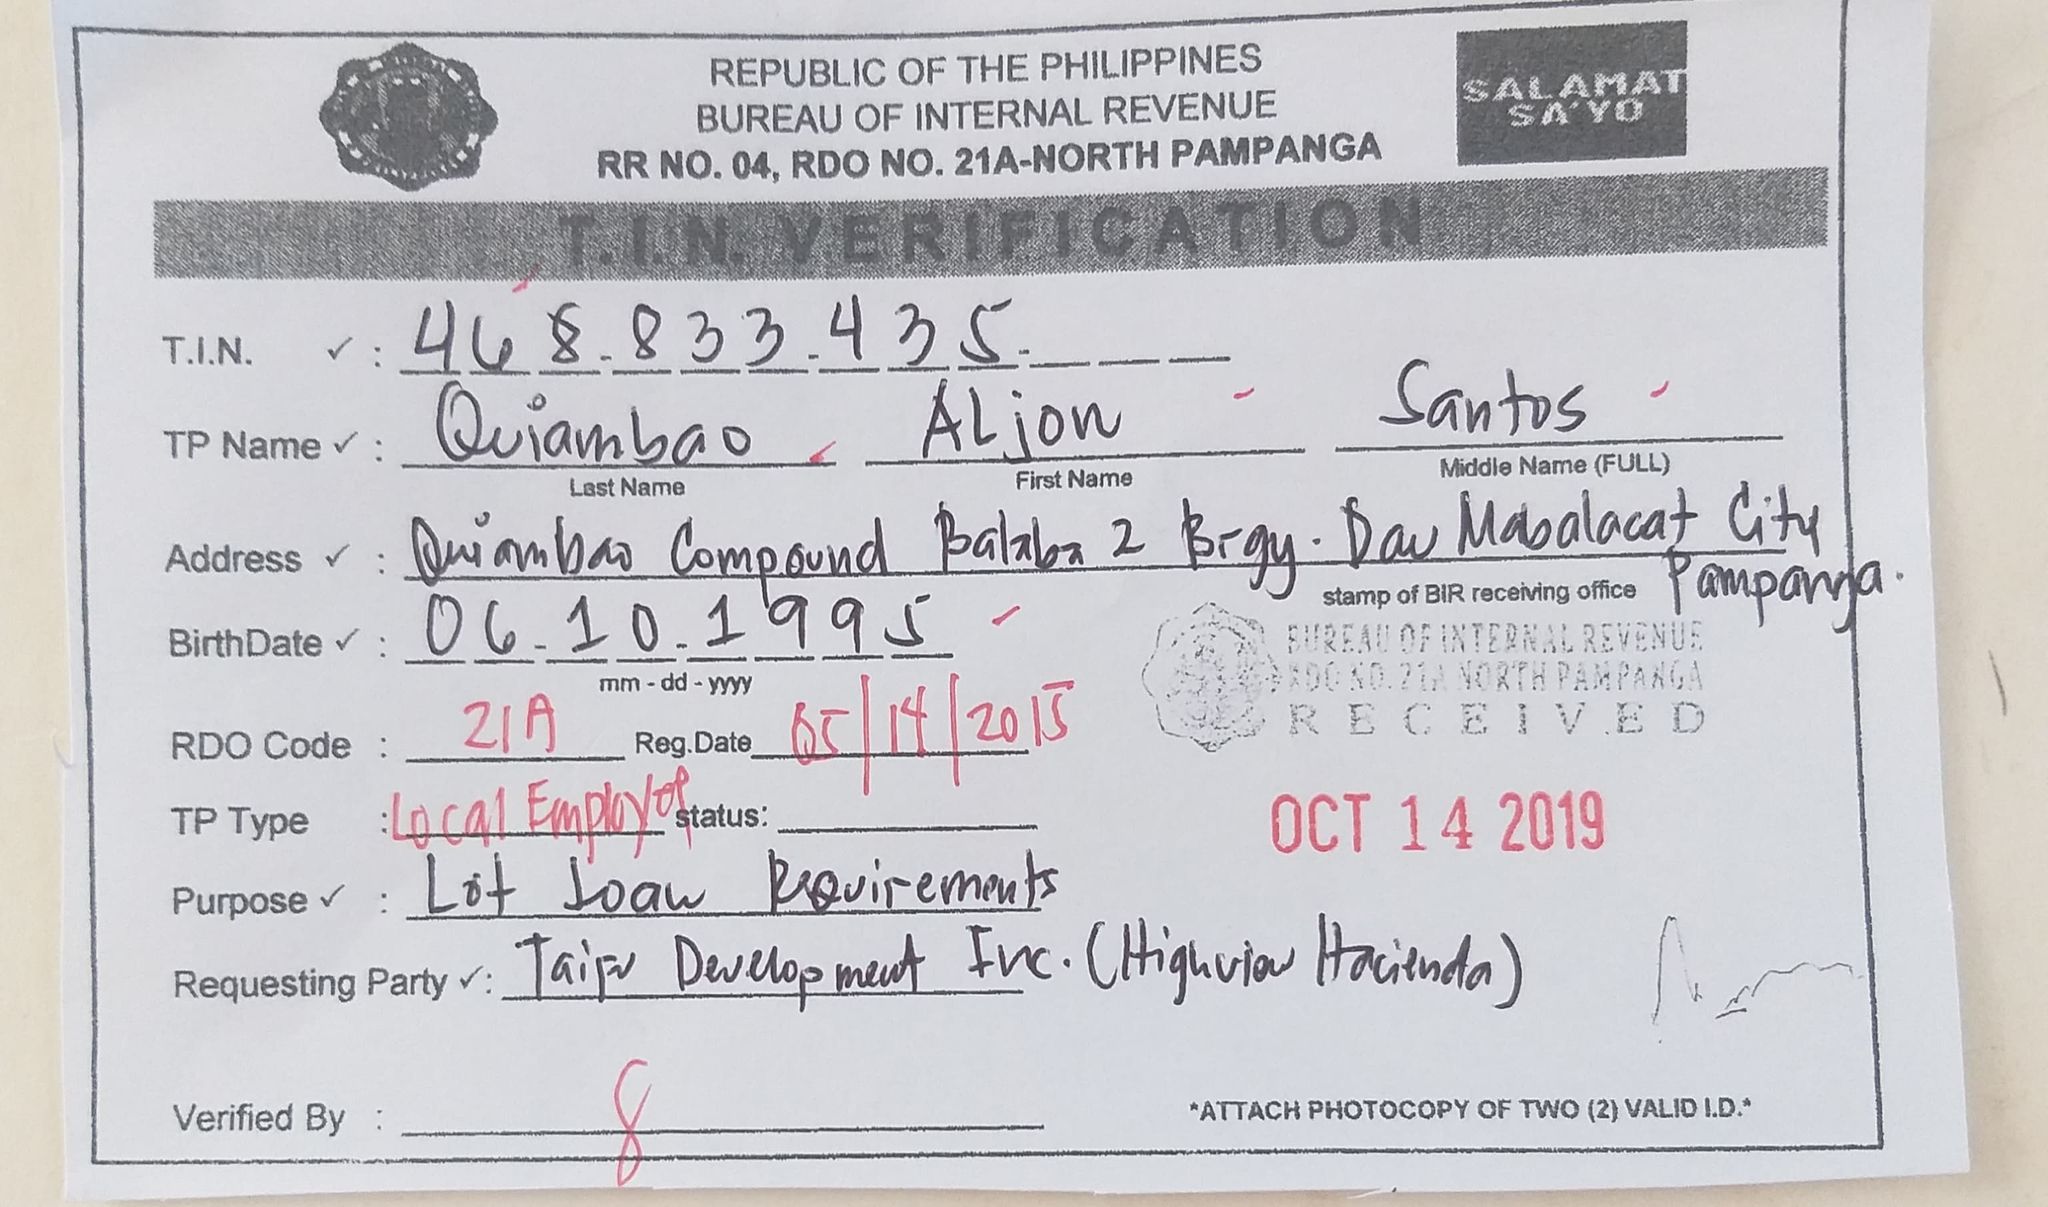 REPUBLIC OF THE PHILIPPINES
BUREAU OF INTERNAL REVENUE
RR NO. 04, RDO NO. 21A-NORTH PAMPANGA
SALAMAT
SA'YO
T.I.N. VERIFICATION
T.I.N. ✓ : 468-833-435-
TP Name ✓ : Quiambao ALjon Santos
Last Name First Name Middle Name (FULL)
Address ✓ : Quiambao Compound Balaba 2 Brgy. Dau Mabalacat City
Pampanga.
stamp of BIR receiving office
BirthDate ✓ : 06-10-1995
mm - dd - yyyy
BUREAU OF INTERNAL REVENUE
RDO NO. 21A NORTH PAMPANGA
RECEIVED
RDO Code : 21A Reg.Date 05/14/2015
TP Type : Local Employee status:
OCT 14 2019
Purpose ✓ : Lot Loan Requirements
Requesting Party ✓: Development Inc. (Highview Hacienda)
Verified By :
*ATTACH PHOTOCOPY OF TWO (2) VALID I.D.*